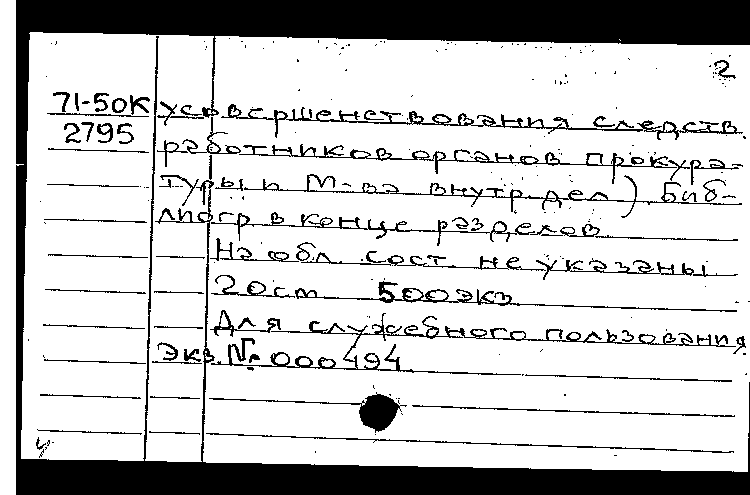 2
71-50К усовершенствования следств.
2795 работников органов прокура-
туры и М-ва внутр. дел). Биб-
лиогр. в конце разделов.
На обл. сост. не указаны.
20см 500экз.
Для служебного пользования.
Экз. № 000494.